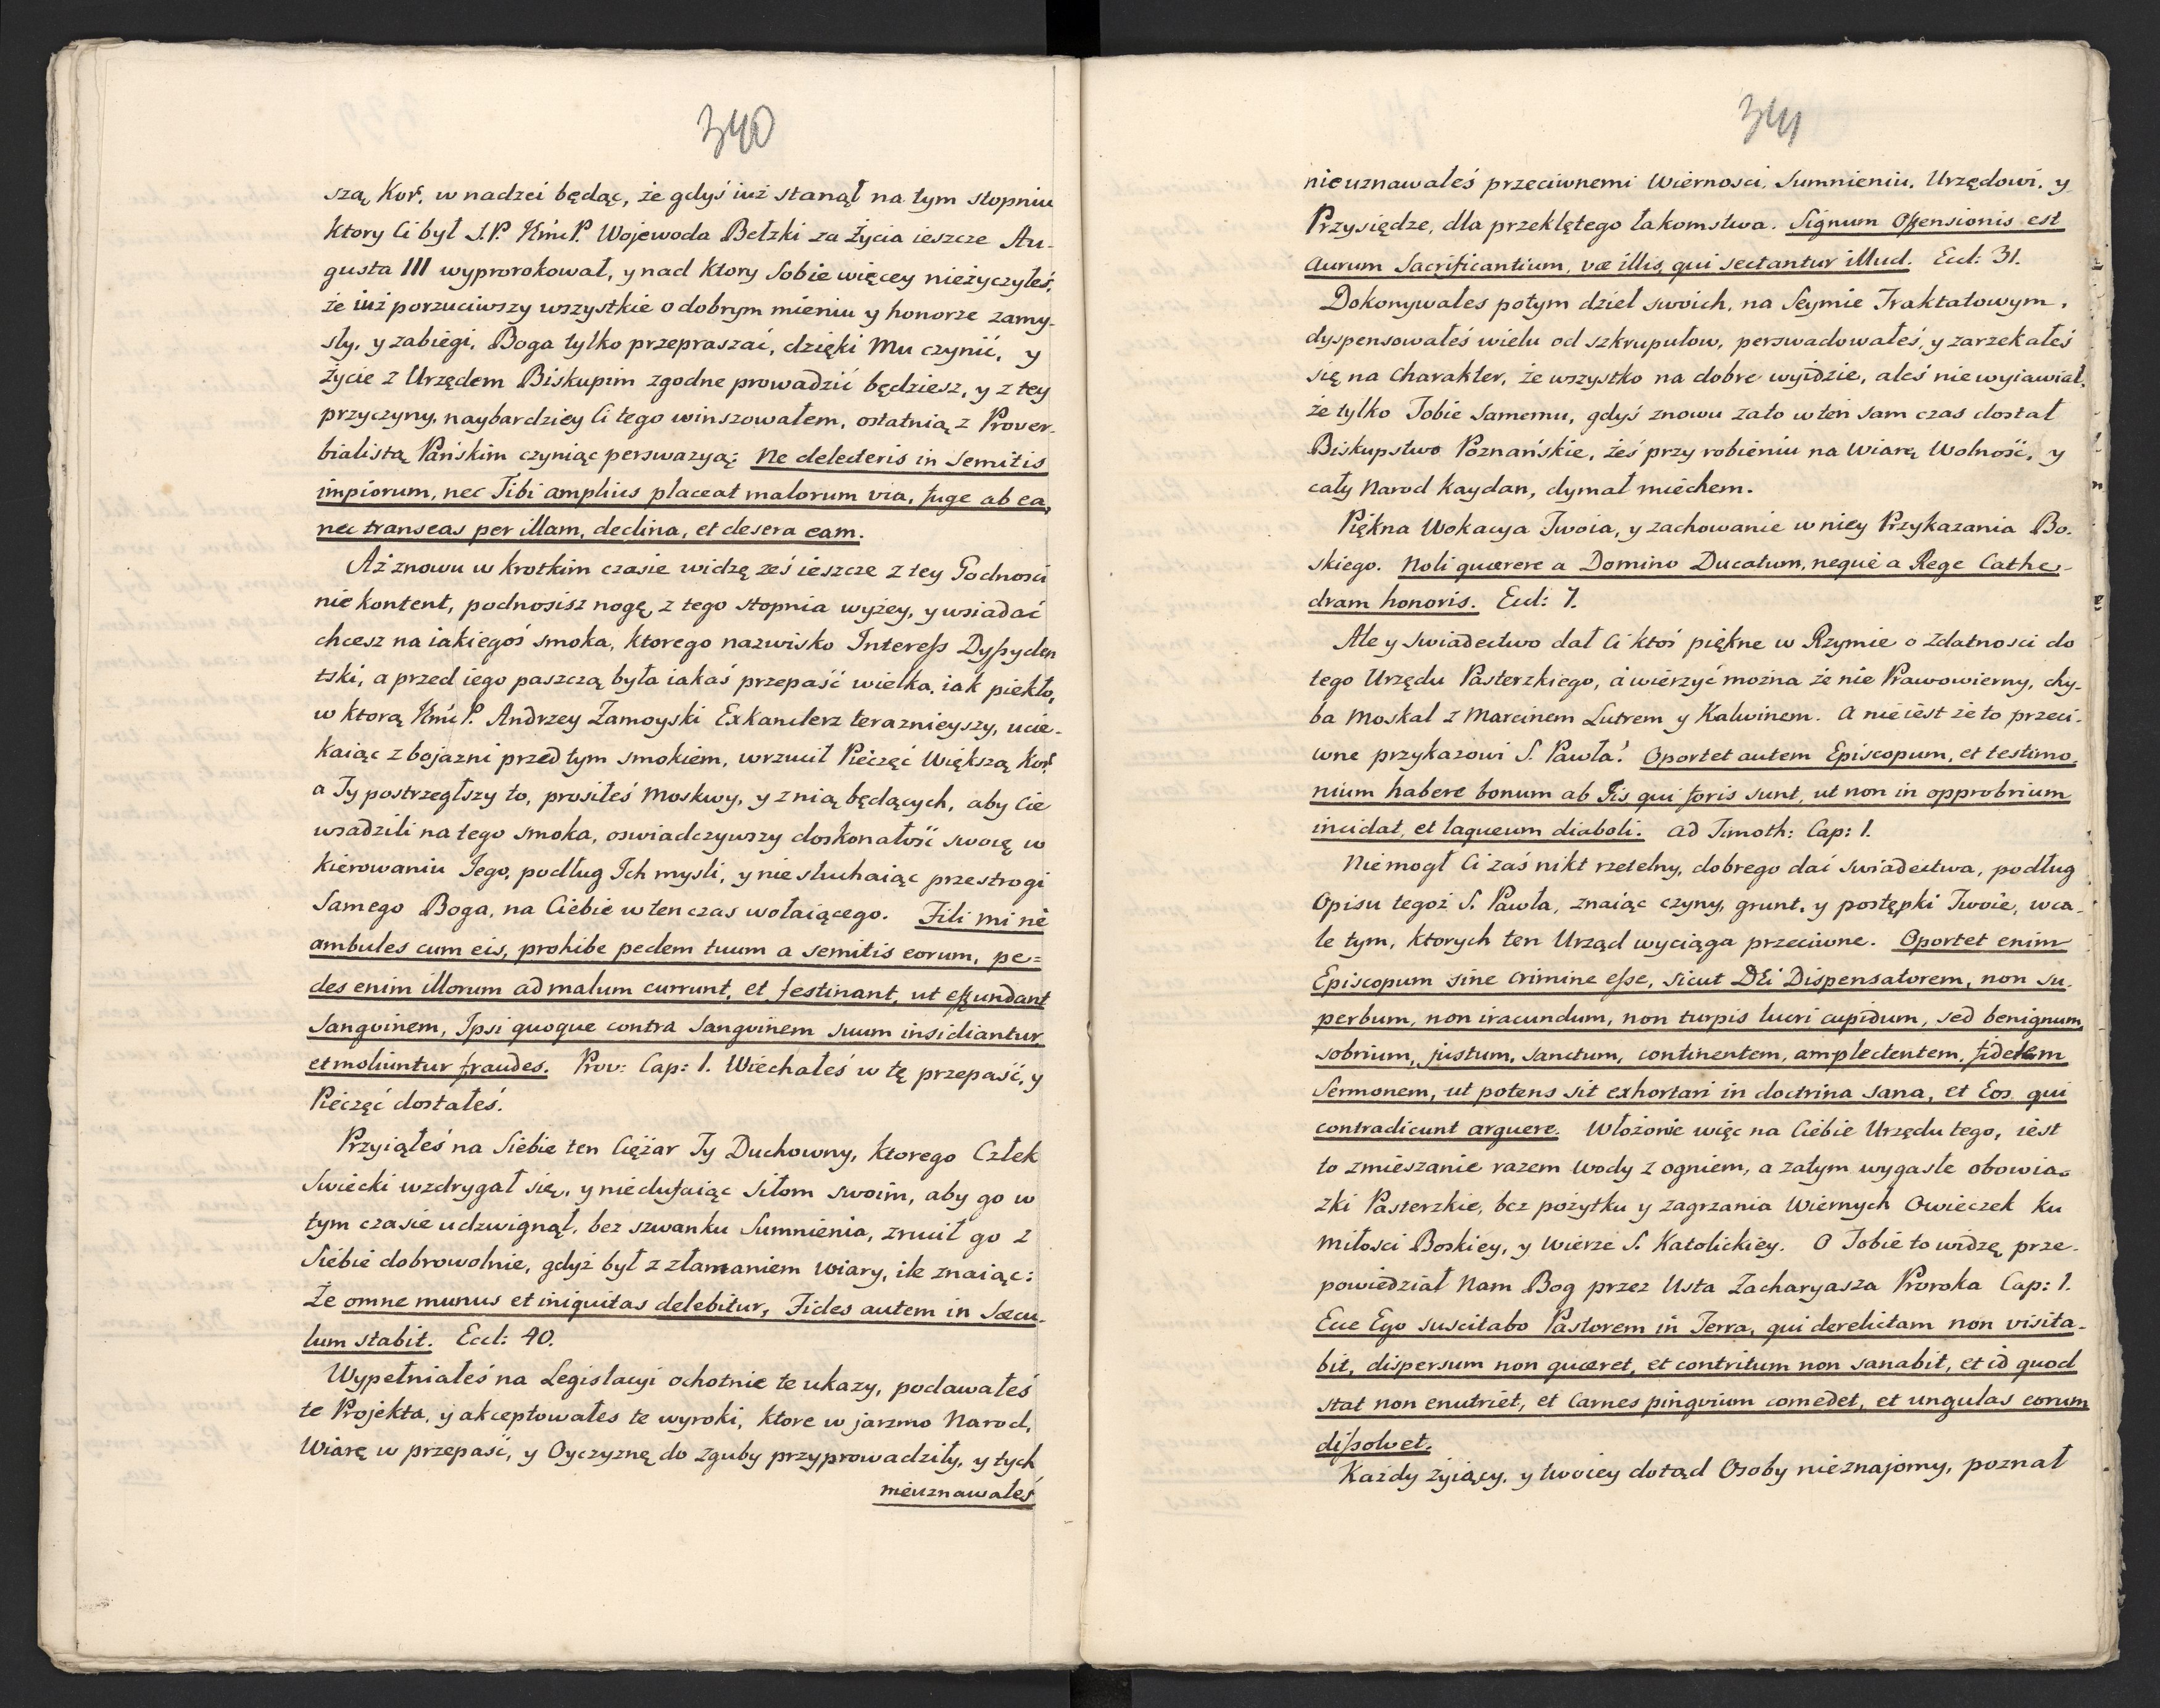 340
szą Kor. w nadzei będąc, że gdyś iuż stanął na tym stopniu
ktory Ci był S.P. JmćP. Wojewoda Bełzki za życia ieszcze Au-
gusta III wyprorokował, y nad ktory Sobie więcey nieżyczyłeś,
że iuż porzuciwszy wszystkie o dobrym mieniu y honorze zamy-
sły, y zabiegi, Boga tylko przepraszać, dzięki Mu czynić, y
życie z Urzędem Biskupim zgodne prowadzić będziesz, y z tey
przyczyny, naybardziey Ci tego winszowałem, ostatnią z Prover-
bialistą Pańskim czyniąc perswazyą: Ne delecteris in Semitis
impiorum, nec Tibi amplius placeat malorum via, fuge ab ea,
nec transeas per illam, declina, et desera eam.
Aż znowu w krotkim czasie widzę żeś ieszcze z tey Godnosci
nie kontent, podnosisz nogę z tego stopnia wyżey, y wsiadać
chcesz na iakiegoś smoka, ktorego nazwisko Interess Dyssyden
tski, a przed iego paszczą była iakaś przepaść wielka, iak piekło,
w ktorą JmćP. Andrzey Zamoyski ExKanclerz teraznieyszy, ucie-
kaiąc z bojazni przed tym smokiem, wrzucił Pieczęć Większą Kor.
a Ty postrzegłszy to, prosiłeś Moskwy, y z nią będących, aby Cie
wsadzili na tego smoka, oswiadczywszy doskonałość swoię w
kierowaniu Jego, podług Ich mysli, y nie słuhaiąc przestrogi
Samego Boga, na Ciebie w ten czas wołaiącego. Fili mi ne
ambules cum eis, prohibe pedem tuum a semitis eorum, pe=
des enim illorum ad malum currunt, et festinant, ut effundant
Sangvinem, Ipsi quoque contra Sangvinem suum insidiantur
et moliuntur fraudes. Prov: Cap: 1. Wiechałeś w tę przepaść, y
Pieczęć dostałeś.
Przyiąłeś na Siebie ten Ciężar Ty Duchowny, ktorego Człek
Swiecki wzdrygał się, y niedufaiąc siłom swoim, aby go w
tym czasie udzwignął, bez szwanku Sumnienia, zrucił go z
Siebie dobrowolnie, gdyż był z złamaniem Wiary, ile znaiąc:
Że omne munus et iniquitas delebitur, Fides autem in Sæcu-
lum stabit. Eccl: 40.
Wypełniałeś na Legislacyi ochotnie te ukazy, podawałeś
te Projekta, y akceptowałes te wyroki, ktore w jarzmo Narod,
Wiarę w przepaść, y Oyczyznę do zguby przyprowadziły, y tych
nieuznawałeś
341
nieuznawałeś przeciwnemi Wiernosci, Sumnieniu, Urzędowi, y
Przysiędze, dla przeklętego łakomstwa. Signum Offensionis est
aurum Sacrificantium, væ illis, qui sectantur illud. Eccl: 31.
Dokonywałes potym dzieł swoich, na Seymie Traktatowym,
dyspensowałeś wielu od szkrupułow, perswadowałeś, y zarzekałeś
się na Charakter, że wszystko na dobre wyidzie, aleś nie wyiawiał,
że tylko Tobie Samemu, gdyś znowu zato w ten sam czas dostał
Biskupstwo Poznańskie, żeś przy robieniu na Wiarę Wolność, y
cały Narod kaydan, dymał miechem.
Piękna Wokacya Twoia, y zachowanie w niey Przykazania Bo-
skiego. Noli quærere a Domino Ducatum, neque a Rege Cathe-
dram honoris. Eccl: 7.
Ale y swiadectwo dał Ci ktoś piękne w Rzymie o zdatnosci do
tego Urzędu Pasterzkiego, a wierzyć można że nie Prawowierny, chy-
ba Moskal z Marcinem Lutrem y Kalwinem. A nie iest że to przeci-
wne przykazowi S. Pawła? Oportet autem Episcopum, et testimo-
nium habere bonum ab Iis qui foris sunt, ut non in opprobrium
incidat, et laqueum diaboli. ad Timoth: Cap: 1.
Niemogł Ci zaś nikt rzetelny, dobrego dać swiadectwa, podług
Opisu tegoż S. Pawła, znaiąc czyny, grunt, y postępki Twoie, wca-
le tym, ktorych ten Urząd wyciąga przeciwne. Oportet enim
Episcopum sine crimine esse, sicut DEi Dispensatorem, non su-
perbum, non iracundum, non turpis lucri cupidum, sed benignum,
sobrium, justum, sanctum, continentem, amplectentem, fidelem
Sermonem, ut potens sit exhortari in doctrina sana, et Eos qui
contradicunt arguere. Włożonie więc na Ciebie Urzędu tego, iest
to zmieszanie razem wody z ogniem, a zatym wygasłe obowią-
zki Pasterzkie, bez pożytku y zagrzania Wiernych Owieczek ku
miłosci Boskiey, y Wierze S. Katolickiey. O Tobie to widzę prze-
powiedział Nam Bog przez Usta Zacharyasza Proroka Cap: 1.
Ecce Ego suscitabo Pastorem in Terra, qui derelictam non visita-
bit, dispersum non quæret, et contritum non sanabit, et id quod
stat non enutriet, et Carnes pingvium comedet, et ungulas eorum
dissolvet.
Każdy żyiący, y twoiey dotąd Osoby nieznajomy, poznał